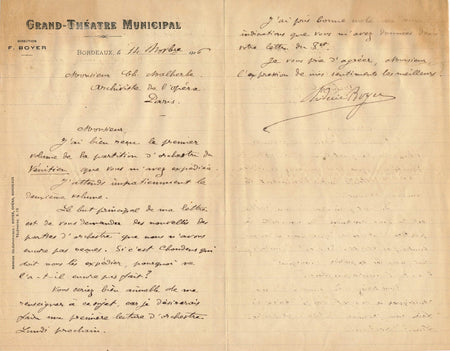 GRAND-THÉATRE MUNICIPAL
DIRECTION
F. BOYER
BORDEAUX, le 14 9bre
Monsieur Ch. Malherbe
Archiviste de l'opéra
Paris
Monsieur
J'ai bien reçu le premier
volume de la partition d'orchestre du
Vénitien que vous m'avez expédiée.
J'attends impatiemment le
deuxième volume.
Le but principal de ma lettre
est de vous demander des nouvelles des
parties d'orchestre que nous n'avons
encore pas reçues. Si c'est Choudens qui
doit nous les expédier, pourquoi ne
l'a-t-il encore pas fait?
Vous seriez bien aimable de me
renseigner à ce sujet, car je désirerais
faire une première lecture d'orchestre
Lundi prochain.
J'ai pris bonne note des
indications que vous m'avez données dans
votre lettre du
Je vous prie d'agréer, Monsieur
l'expression de mes sentiments les meilleurs.
Boyer